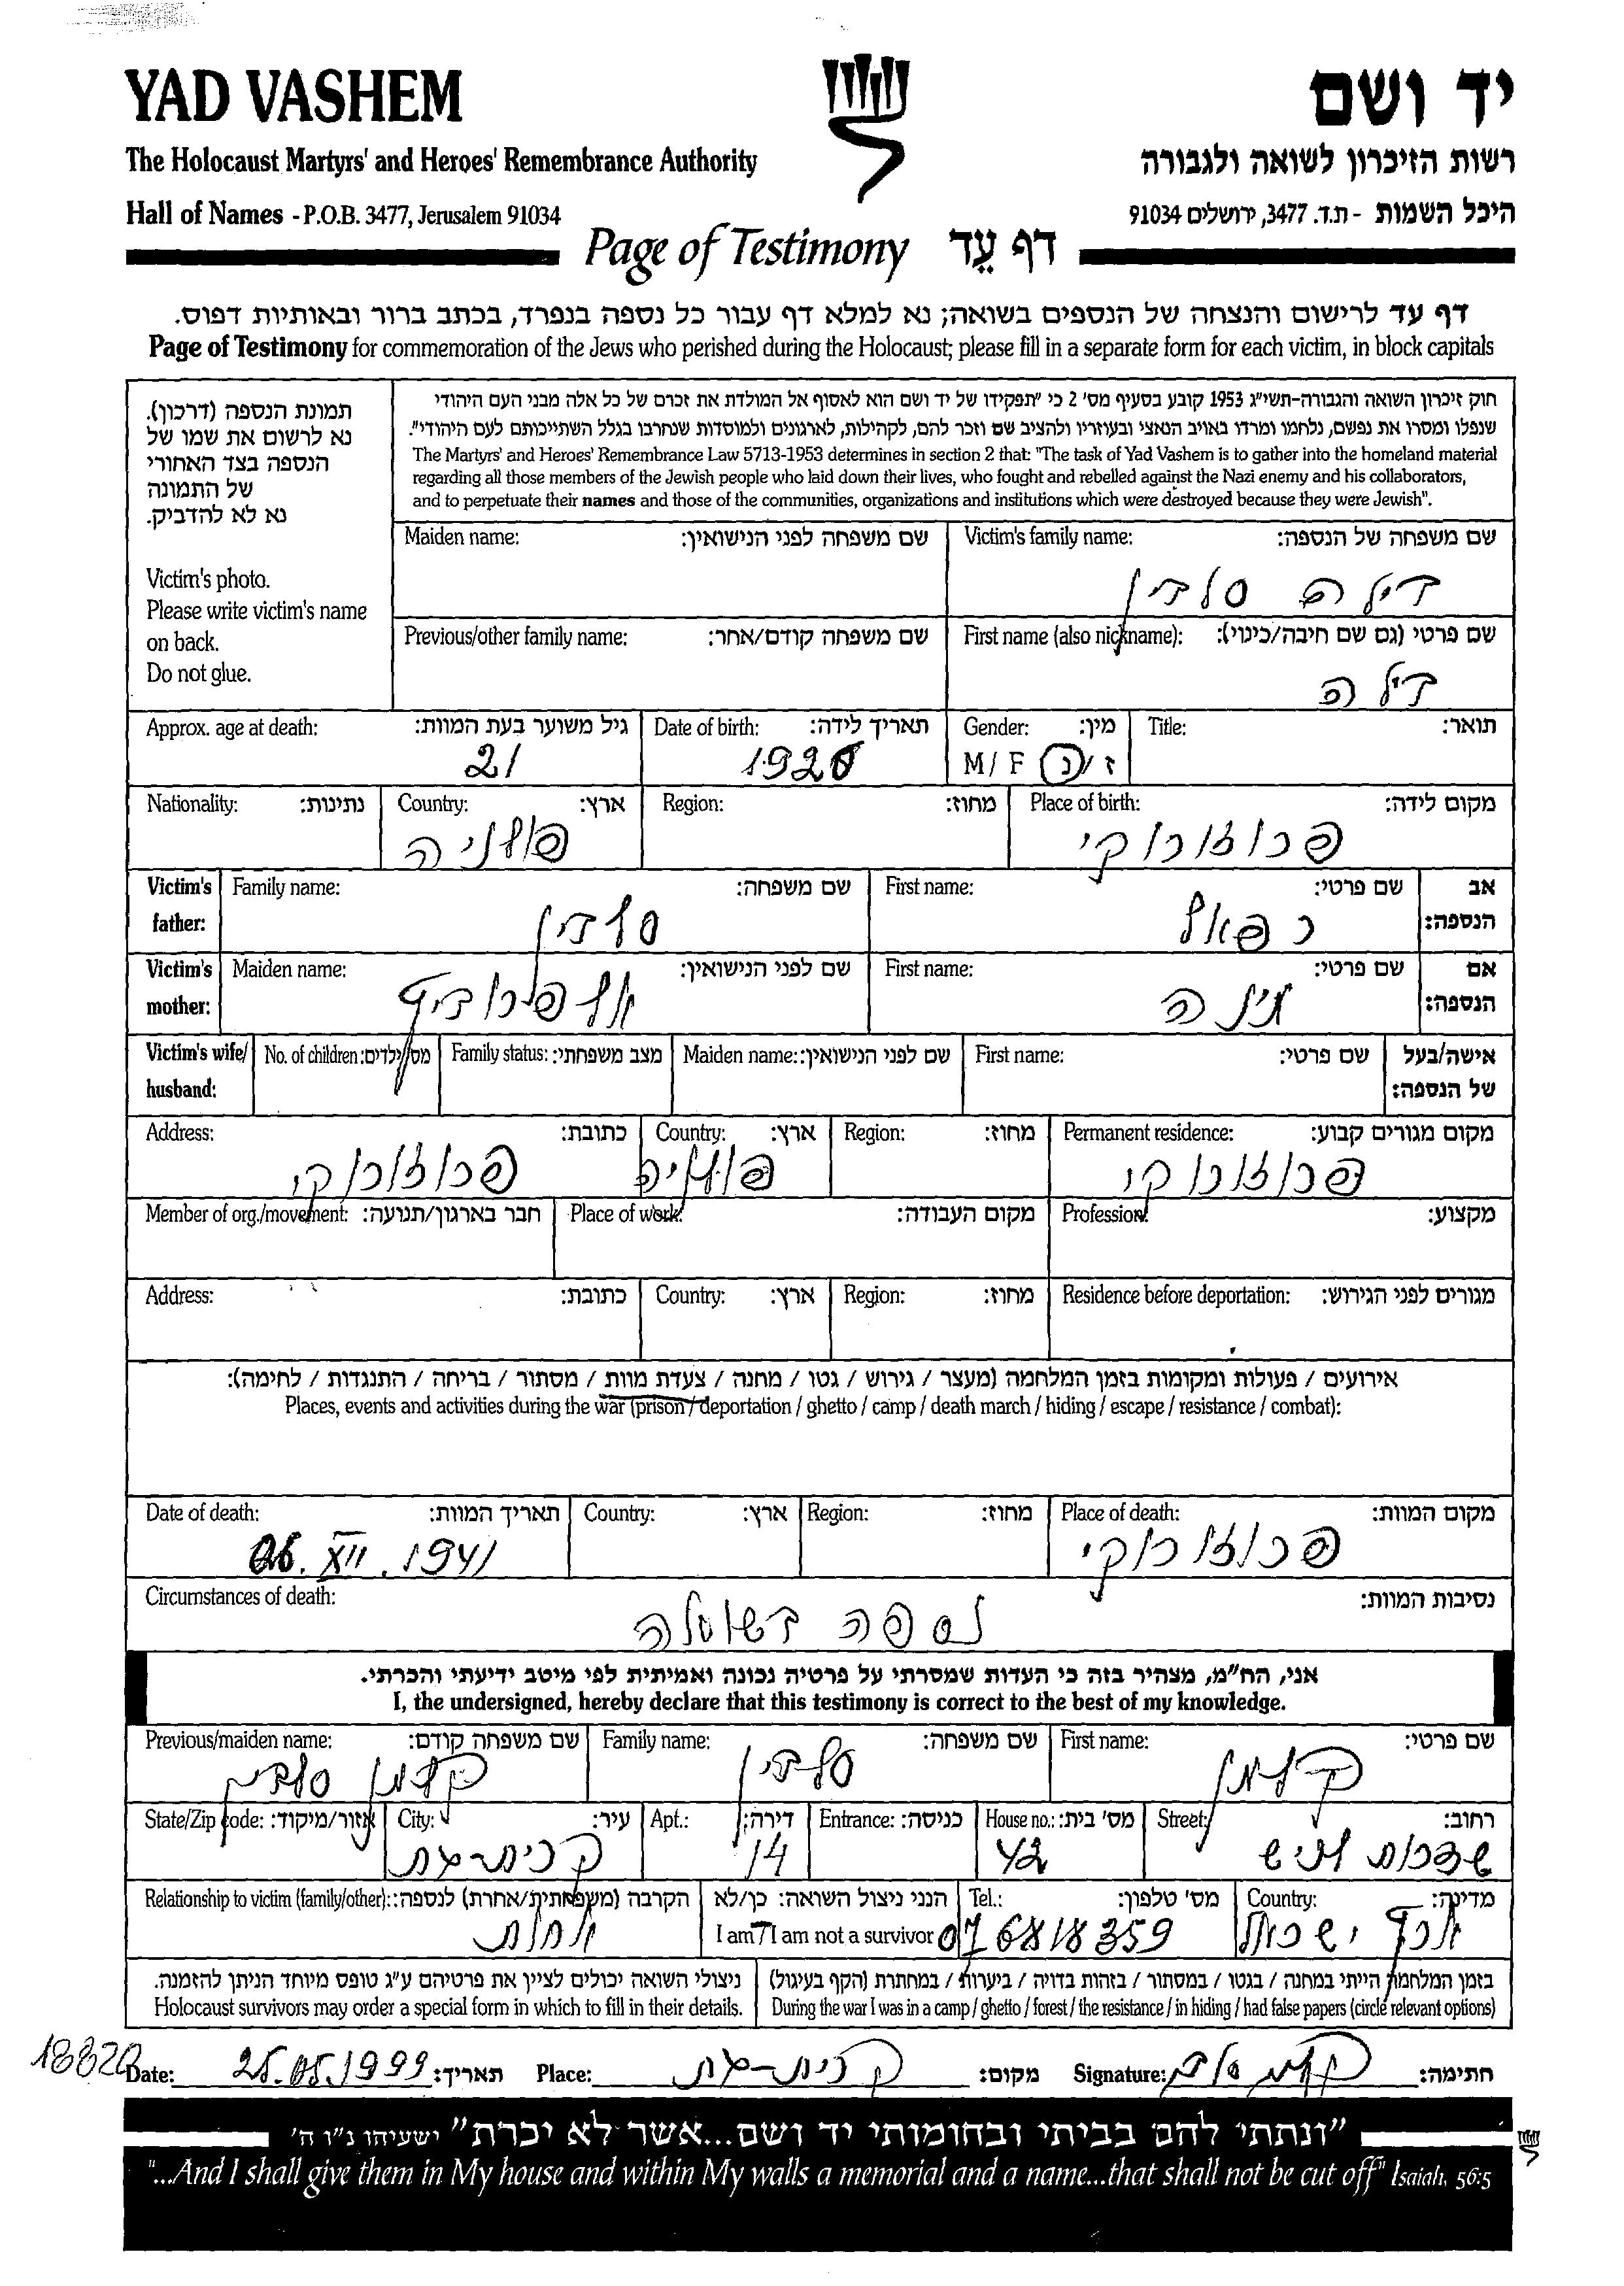 YAD VASHEM
יד ושם
The Holocaust Martyrs' and Heroes' Remembrance Authority
רשות הזיכרון לשואה ולגבורה
Hall of Names - P.O.B. 3477, Jerusalem 91034
היכל השמות - ת.ד. 3477, ירושלים 91034
Page of Testimony דף עֵד
דף עד לרישום והנצחה של הנספים בשואה; נא למלא דף עבור כל נספה בנפרד, בכתב ברור ובאותיות דפוס.
Page of Testimony for commemoration of the Jews who perished during the Holocaust; please fill in a separate form for each victim, in block capitals
תמונת הנספה (דרכון).
נא לרשום את שמו של
הנספה בצד האחורי
של התמונה
נא לא להדביק.
Victim's photo.
Please write victim's name
on back.
Do not glue.
חוק זיכרון השואה והגבורה-תשי"ג 1953 קובע בסעיף מס' 2 כי "תפקידו של יד ושם הוא לאסוף אל המולדת את זכרם של כל אלה מבני העם היהודי
שנפלו ומסרו את נפשם, נלחמו ומרדו באויב הנאצי ובעוזריו ולהציב שם וזכר להם, לקהילות, לארגונים ולמוסדות שנחרבו בגלל השתייכותם לעם היהודי".
The Martyrs' and Heroes' Remembrance Law 5713-1953 determines in section 2 that: "The task of Yad Vashem is to gather into the homeland material
regarding all those members of the Jewish people who laid down their lives, who fought and rebelled against the Nazi enemy and his collaborators,
and to perpetuate their names and those of the communities, organizations and institutions which were destroyed because they were Jewish".
Maiden name: שם משפחה לפני הנישואין: Victim's family name: שם משפחה של הנספה:
דילה סלדין
Previous/other family name: שם משפחה קודם/אחר: First name (also nickname): שם פרטי (גם שם חיבה/כינוי):
דילה
Approx. age at death: גיל משוער בעת המוות: Date of birth: תאריך לידה: Gender: מין: Title: תואר:
21 1920 M/ F ז/נ
Nationality: נתינות: Country: ארץ: Region: מחוז: Place of birth: מקום לידה:
פולניה
Victim's father: Family name: שם משפחה: First name: שם פרטי: אב הנספה:
סלדין רפאל
Victim's mother: Maiden name: שם לפני הנישואין: First name: שם פרטי: אם הנספה:
Victim's wife/ husband: No. of children: מס' ילדים: Family status: מצב משפחתי: Maiden name: שם לפני הנישואין: First name: שם פרטי: אישה/בעל של הנספה:
Address: כתובת: Country: ארץ: Region: מחוז: Permanent residence: מקום מגורים קבוע:
Member of org./movement: חבר בארגון/תנועה: Place of work: מקום העבודה: Profession: מקצוע:
Address: כתובת: Country: ארץ: Region: מחוז: Residence before deportation: מגורים לפני הגירוש:
אירועים / פעולות ומקומות בזמן המלחמה (מעצר / גירוש / גטו / מחנה / צעדת מוות / מסתור / בריחה / התנגדות / לחימה):
Places, events and activities during the war (prison / deportation / ghetto / camp / death march / hiding / escape / resistance / combat):
Date of death: תאריך המוות: Country: ארץ: Region: מחוז: Place of death: מקום המוות:
06. XII. 1941
Circumstances of death: נסיבות המוות:
נספה בשואה
אני, הח"מ, מצהיר בזה כי העדות שמסרתי על פרטיה נכונה ואמיתית לפי מיטב ידיעתי והכרתי.
I, the undersigned, hereby declare that this testimony is correct to the best of my knowledge.
Previous/maiden name: שם משפחה קודם: Family name: שם משפחה: First name: שם פרטי:
קלמן סלדין סלדין קלמן
State/Zip code: אזור/מיקוד: City: עיר: Apt.: דירה: Entrance: כניסה: House no.: מס' בית: Street: רחוב:
קרית-גת 14 42 שדרות לכיש
Relationship to victim (family/other): הקרבה (משפחתית/אחרת) לנספה: הנני ניצול השואה: כן/לא Tel.: מס' טלפון: Country: מדינה:
I am / I am not a survivor 07 6818359 ישראל
ניצולי השואה יכולים לציין את פרטיהם ע"ג טופס מיוחד הניתן להזמנה. בזמן המלחמה הייתי במחנה / בגטו / במסתור / בזהות בדויה / ביערות / במחתרת (הקף בעיגול)
Holocaust survivors may order a special form in which to fill in their details. During the war I was in a camp / ghetto / forest / the resistance / in hiding / had false papers (circle relevant options)
18820
Date: 25.05.1999 תאריך: Place: קרית-גת מקום: Signature: חתימה:
"ונתתי להם בביתי ובחומותי יד ושם...אשר לא יכרת" ישעיהו נ"ו ה'
"...And I shall give them in My house and within My walls a memorial and a name...that shall not be cut off" Isaiah, 56:5